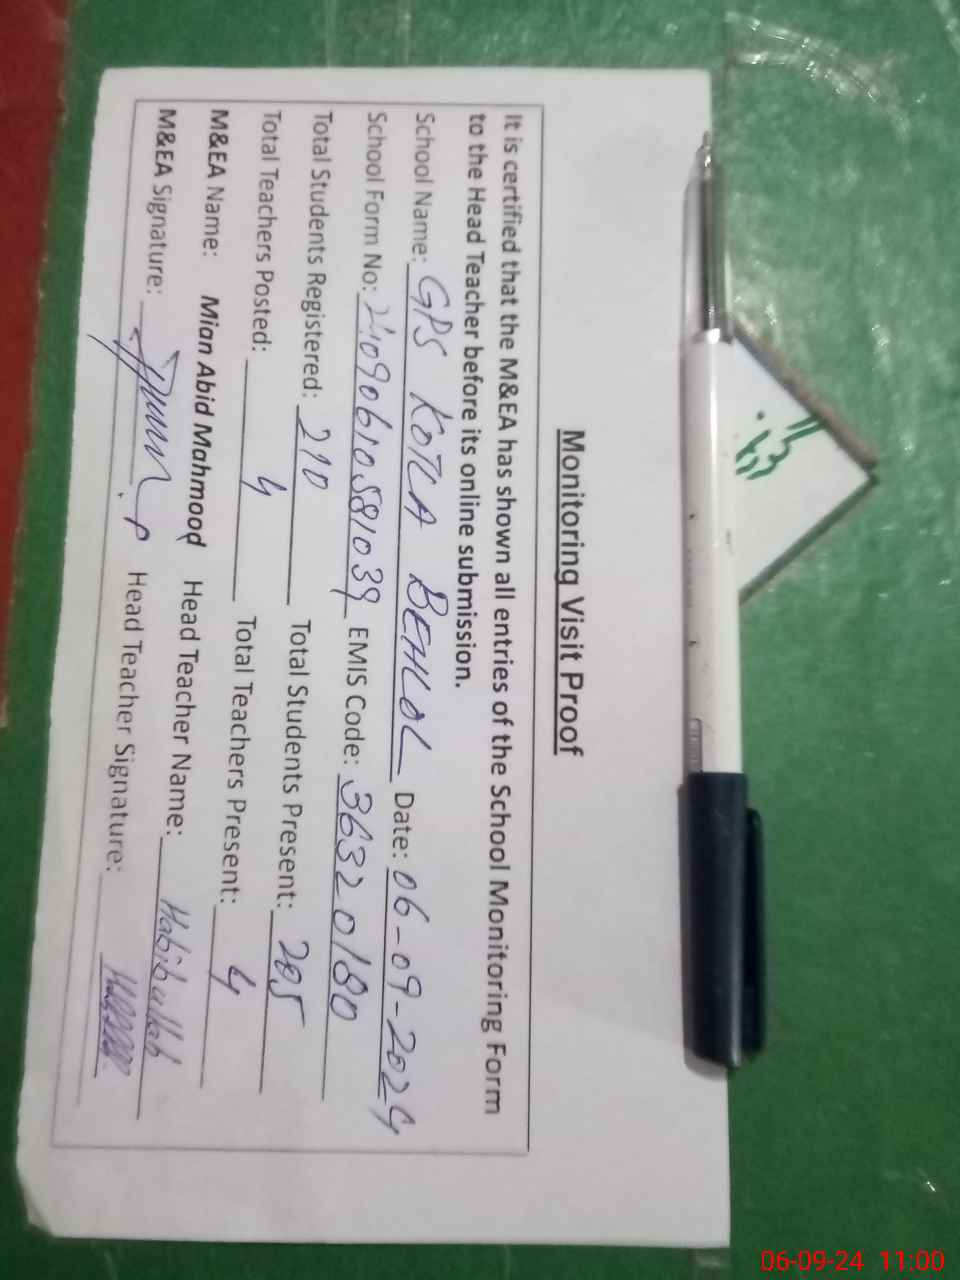 Monitoring Visit Proof
It is certified that the M&EA has shown all entries of the School Monitoring Form
to the Head Teacher before its online submission.
School Name: GPS KOTLA BEHLOL Date: 06-09-2024
School Form No: 24090610581039 EMIS Code: 36320180
Total Students Registered: 210 Total Students Present: 205
Total Teachers Posted: 4 Total Teachers Present: 4
M&EA Name: Mian Abid Mahmood Head Teacher Name: Habib ullah
M&EA Signature: Head Teacher Signature:
06-09-24 11:00